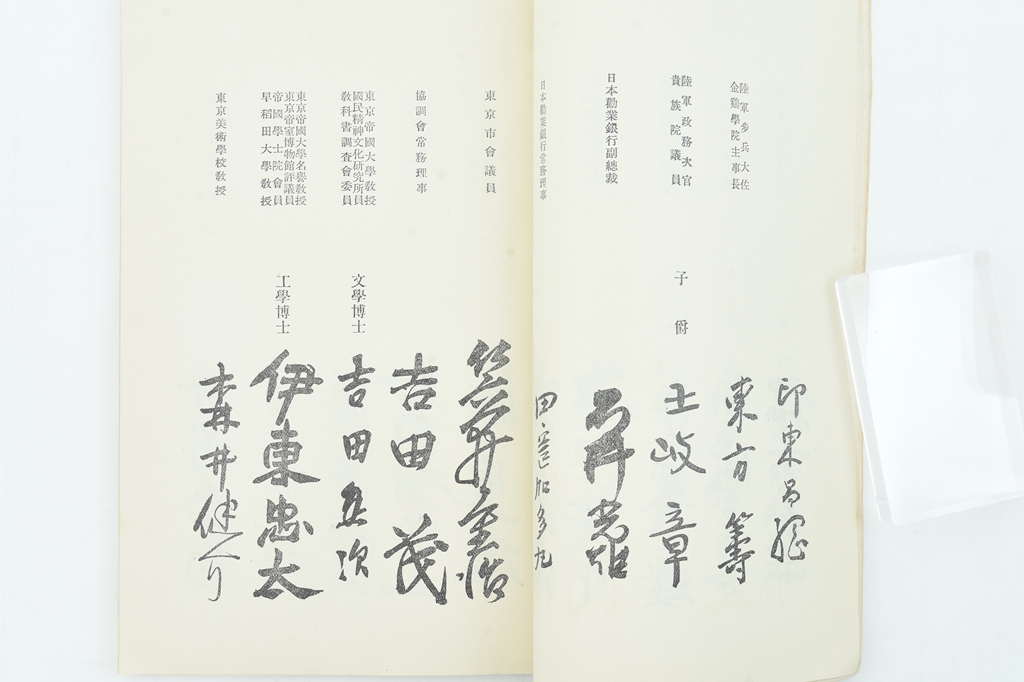 印東昌綱
陸軍歩兵大佐
金鷄學院主事長
東方籌
陸軍政務次官
貴族院議員
子爵
土岐章
日本勸業銀行副總裁
石井光雄
日本勸業銀行常務理事
田邊加多丸
東京市會議員
協調會常務理事
吉田茂
東京帝國大學敎授
國民精神文化硏究所員
敎科書調査會委員
文學博士
吉田熊次
東京帝國大學名譽敎授
東京帝室博物館評議員
帝國學士院會員
早稻田大學敎授
工學博士
伊東忠太
東京美術學校敎授
森井健介